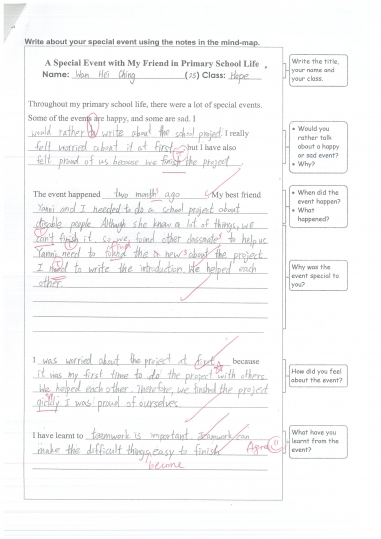 Write about your special event using the notes in the mind-map.
A Special Event with My Friend in Primary School Life
Name: Wan Hei Ching (25) Class: Hope
Write the title, your name and your class.
Throughout my primary school life, there were a lot of special events.
Some of the events are happy, and some are sad. I
would rather write about the school project. I really
felt worried about it at first, but I have also
felt proud of us because we finish the project.
Would you rather talk about a happy or sad event?
Why?
The event happened two month ago. My best friend
Yanni and I needed to do a school project about
disable people. Although she know a lot of things, we
can't finish it. so we found other classmates to help us
Yanni need to found the new about the project.
I need to write the introduction. We helped each
other.
When did the event happen?
What happened?
Why was the event special to you?
I was worried about the project at first because
it was my first time to do the project with others.
We helped each other. Therefore, we finished the project
I was proud of ourselves.
How did you feel about the event?
I have learnt to teamwork is important. Teamwork can
make the difficult things easy to finish.
become
Agree
What have you learnt from the event?